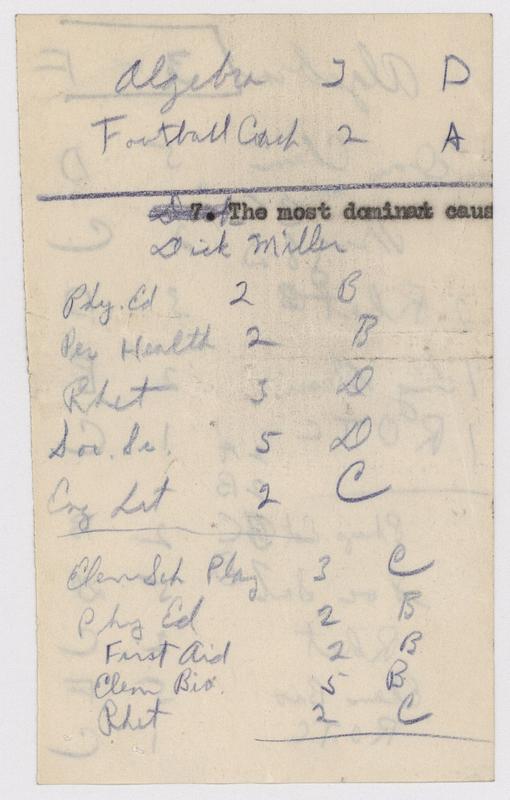 Algebra 3 D
Football Coach 2 A
7. The most dominant caus
Dick Miller
Phy. Ed 2 B
Per Health 2 B
Rhet 3 D
Soc. Sc. 5 D
Eng Lit 2 C
Elem Sch Play 3 C
Phy Ed 2 B
First Aid 2 B
Elem Bio. 5 B
Rhet 2 C